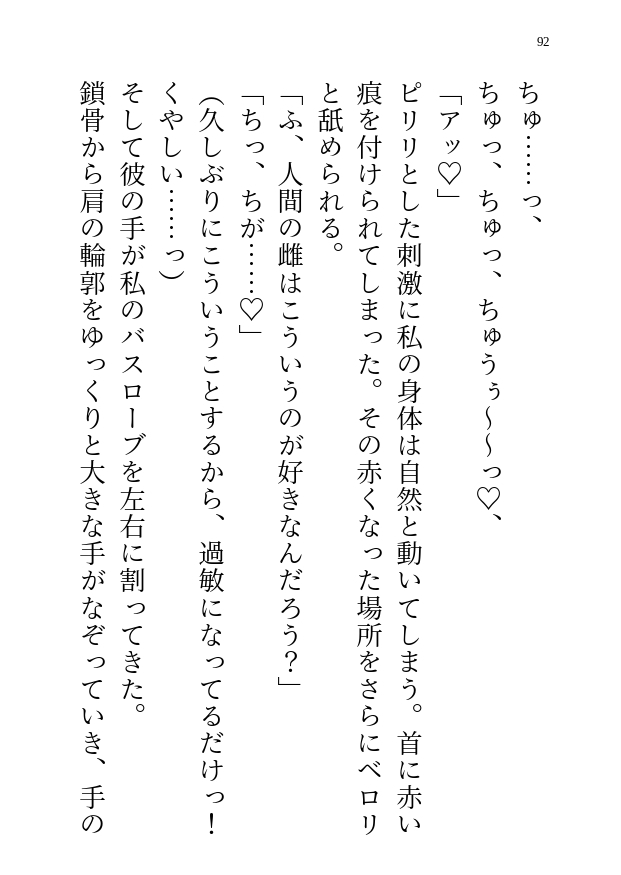 92
ちゅ……っ、
ちゅっ、ちゅっ、ちゅうぅ～～っ♡、
「アッ♡」
ピリリとした刺激に私の身体は自然と動いてしまう。首に赤い
痕を付けられてしまった。その赤くなった場所をさらにベロリ
と舐められる。
「ふ、人間の雌はこういうのが好きなんだろう？」
「ちっ、ちが……♡」
（久しぶりにこういうことするから、過敏になってるだけっ！
くやしい……っ）
そして彼の手が私のバスローブを左右に割ってきた。
鎖骨から肩の輪郭をゆっくりと大きな手がなぞっていき、手の